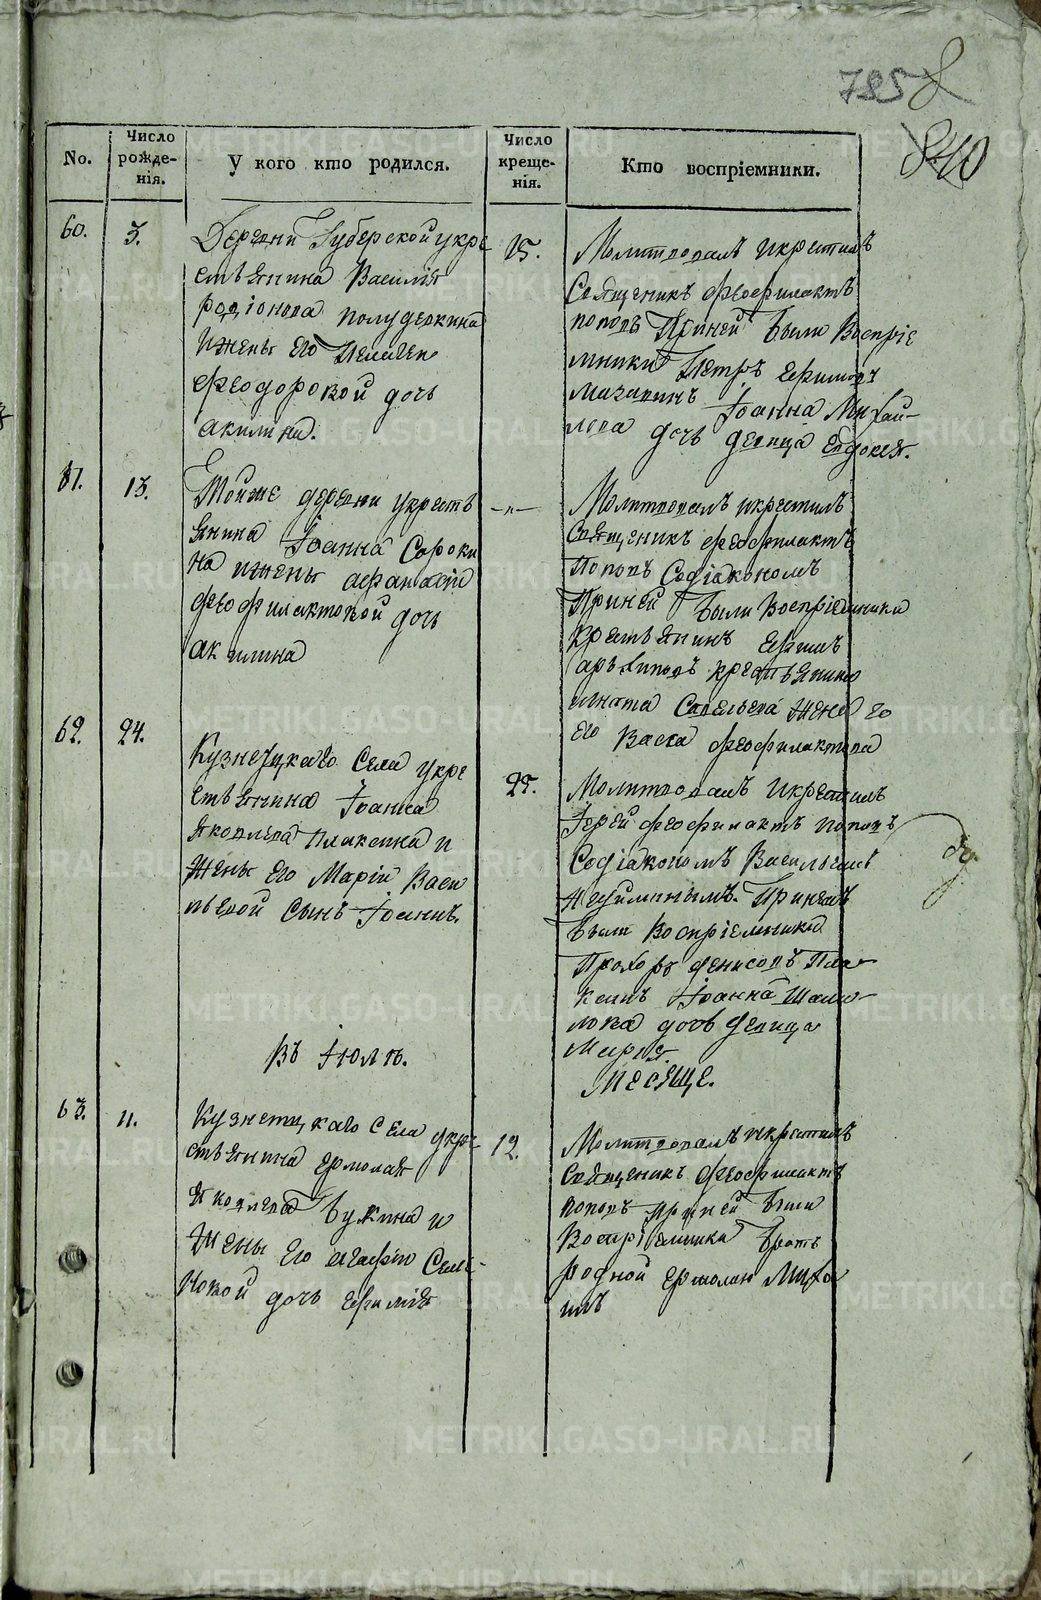 785 8
840
No.
Число рожде- нія.
У кого кто родился.
Число креще- нія.
Кто воспріемники.
60.
3.
Деревни Губерской укре
стьянина Василія
родіонова полудепкина
ижены его Пелагеи
феодоровой дочь
акилина.
15.
Молитвовалъ икрестилъ
Священникъ феофилактъ
поповъ Приней были Воспріе
мники Петръ ефимовъ
Іоанна Михай-
лова дочь девица Евдокея.
61.
13.
Тойже деревни укресть
янина Іоанна Сороки
на ижены афанасіи
феофилактовой дочь
акилина
-"-
Молитвовалъ икрестилъ
Священикъ феофилактъ
Поповъ Содіакономъ
Приней были Воспріемники
крестьянинъ ефимъ
архиповъ крестьянина
игната Савельева жена его
его Васса феофилактова
62.
24.
Кузнецкаго Села укре
стьянина Іоанна
яковлева Плаксина и
жены его Маріи Васи
льевой Сынъ Іоаннъ.
25.
Молитвовалъ Икрестилъ
Іерей феофилактъ поповъ
Содіакономъ Васильемъ
Неуйминымъ. Принемъ
были Воспріемники
Прохоръ денисовъ Пла-
ксинъ Іоанна
дочь девица
Марія
Въ Іюлѣ.
Месяце.
63.
11.
Кузнетцкаго Села укре
стьянина ермолая
яковлева Бункина и
жены его агафіи Семе-
новой дочь ефимія
12.
Молитвовалъ икрестилъ
Священикъ феофилактъ
поповъ приней были
Воспріемники братъ
родной ермолаю Миха
илъ
METRIKI.GASO-URAL.RU